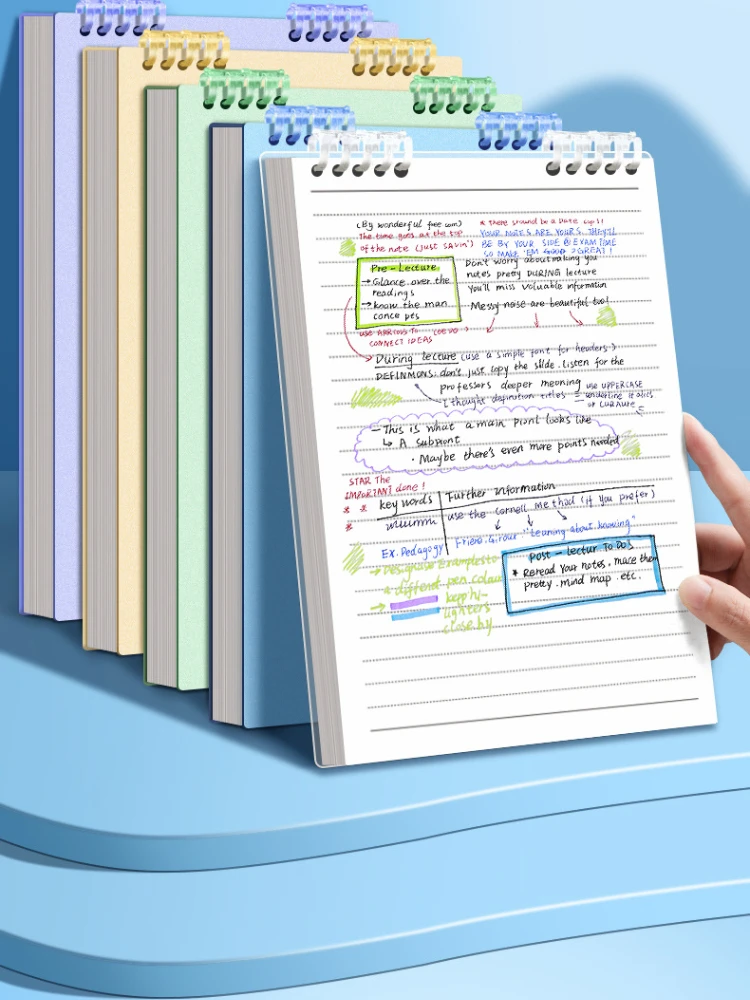 (By wonderful free com)
The time goes at the top
of the note (just SAyin')
* There should be a Date cups!
YOUR NOTES ARE YOURS. THEY'LL
BE BY YOUR SIDE @ EXAM TIME
SO MAKE 'EM GOOD >GREAT!
Pre-Lecture
→Glance over the
readings
→know the man
conce pts
Don't worry about making you
notes pretty DURING lecture
You'll miss valuable information
Messy noise are beautiful too!
CONNECT IDEAS
During lecture (use a simple font for headers.)
DEFINMONS: don't just lopy the slide. listen for the
professors deeper meaning
I thought definition titles =
use UPPERCASE
underline italics
or
- This is what a main piont looks like
↳ A subpiont
· Maybe there's even more points needed
STAR The
IMPORTANT done!
* *
*
key words
Further information
use the Cornell me thod (if You prefer)
Ex. Pedagogy
"teaning about knowing"
→
a differet pen colour
→ keep hi-
lighters
close by
Post-lectur To DoS
* Reread Your notes. mace them
pretty. mind map. etc.